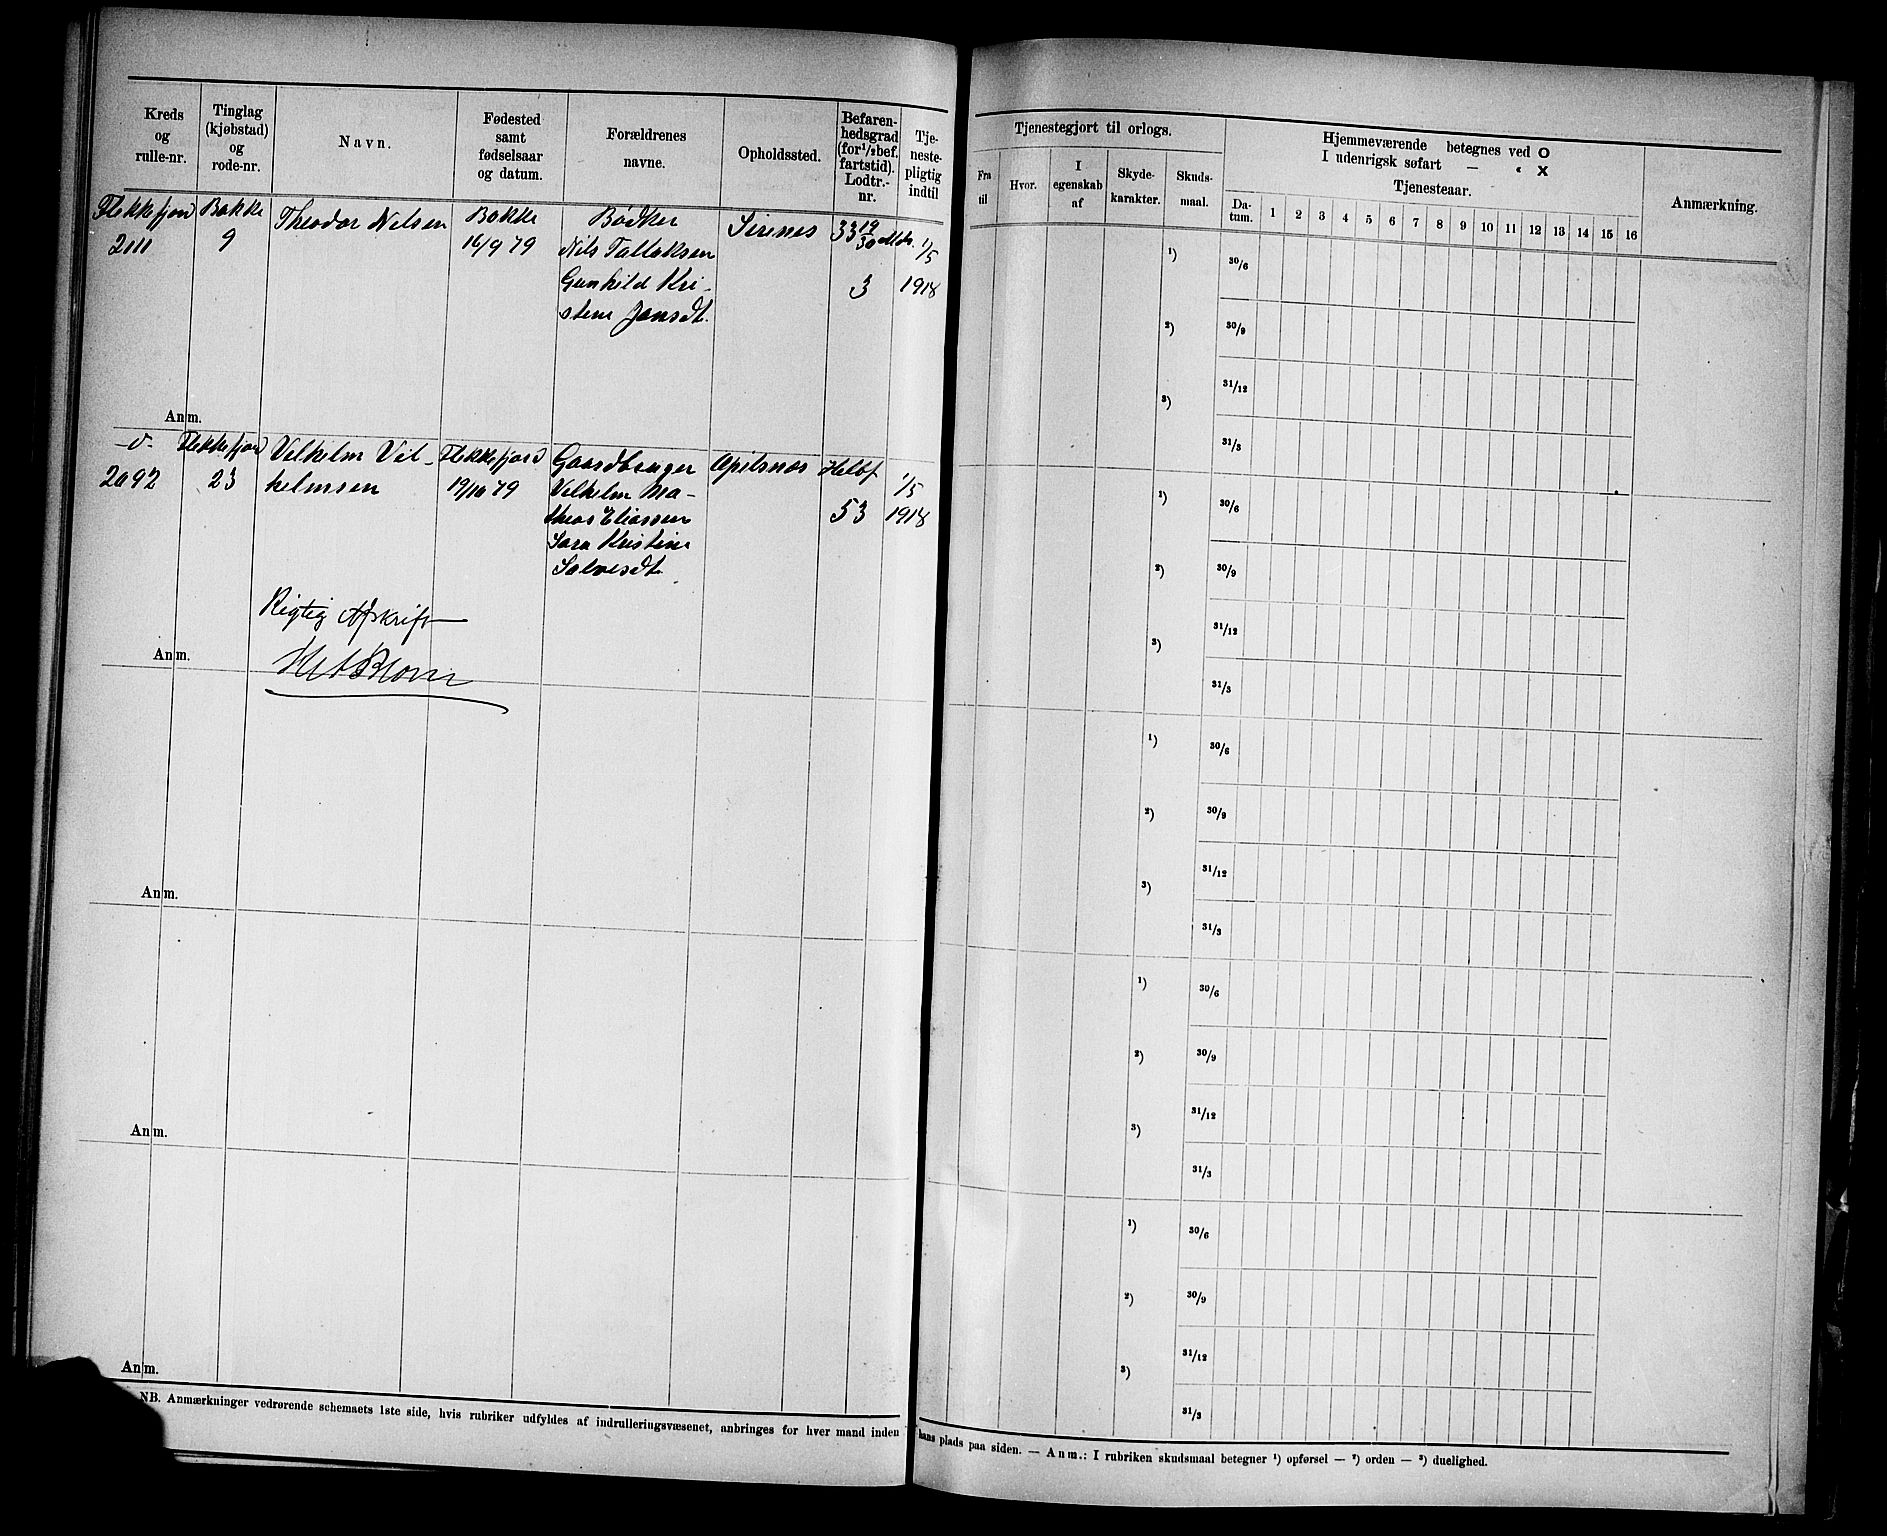 Kreds
og
rulle-nr.
Tinglag
(kjøbstad)
og
rode-nr.
Navn.
Fødested
samt
fødselsaar
og datum.
Forældrenes
navne.
Opholdssted.
Befaren-
hedsgrad
(for 1/2 bef.
fartstid).
Lodtr.-
nr.
Tje-
neste-
pligtig
indtil
Flekkefjord
2111
Bakke
9
Theodor Nilsen
Bakke
16/9 79
Bødker
Nils Tallaksen
Gunhild Kri-
stine Jansdt.
Sirenes
33 19/30 Mdr.
3
1/5
1918
Anm.
-d-
2092
Flekkefjord
23
Vilhelm Vil-
helmsen
Flekkefjord
19/10 79
Gaardbruger
Vilhelm Ma-
theas Eliassen
Sara Kristine
Salvesdt.
Apelsnæs
Helbf
53
1/5
1918
Rigtig Afskrift
Anm.
Anm.
Anm.
Anm.
NB. Anmærkninger vedrørende schemaets 1ste side, hvis rubriker udfyldes af indrulleringsvæsenet, anbringes for hver mand inden
Tjenestegjort til orlogs.
Fra
til
Hvor.
I
egenskab
af
Skyde-
karakter.
Skuds-
maal.
Hjemmeværende betegnes ved O
I udenrigsk søfart — " X
Tjenesteaar.
Da-
tum. 1 2 3 4 5 6 7 8 9 10 11 12 13 14 15 16
Anmærkning.
¹) 30/6
²) 30/9
31/12
³)
31/3
¹) 30/6
²) 30/9
31/12
³)
31/3
¹) 30/6
²) 30/9
31/12
³)
31/3
¹) 30/6
²) 30/9
31/12
³)
31/3
¹) 30/6
²) 30/9
31/12
³)
31/3
hans plads paa siden. — Anm.: I rubriken skudsmaal betegner ¹) opførsel — ²) orden — ³) duelighed.